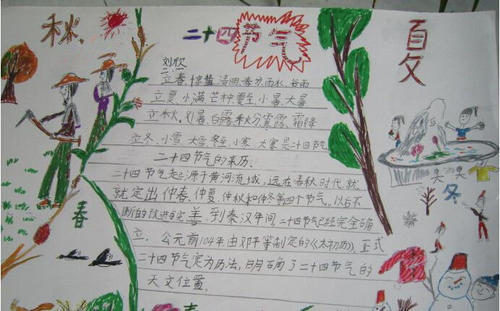 秋
二十四节气
夏
刘欣
立春,惊蛰 清明 春分 雨水,谷雨
立夏 小满 芒种 夏至 小暑 大暑
立秋,处暑 白露 秋分 寒露,霜降
立冬,小雪 大雪 冬至,小寒 大寒是二十四节气
二十四节气的来历.
二十四节气起原于黄河流域,远在春秋时代,就
就定出仲春、仲夏、仲秋和仲冬等四个节气。以后不
断的改进与完善,到秦汉年间二十四节气已经完全确
立。公元前104年由邓平等制定的《太初历》正式
二十四节气定为历法,明确了二十四节气的
天文位置。
春
冬